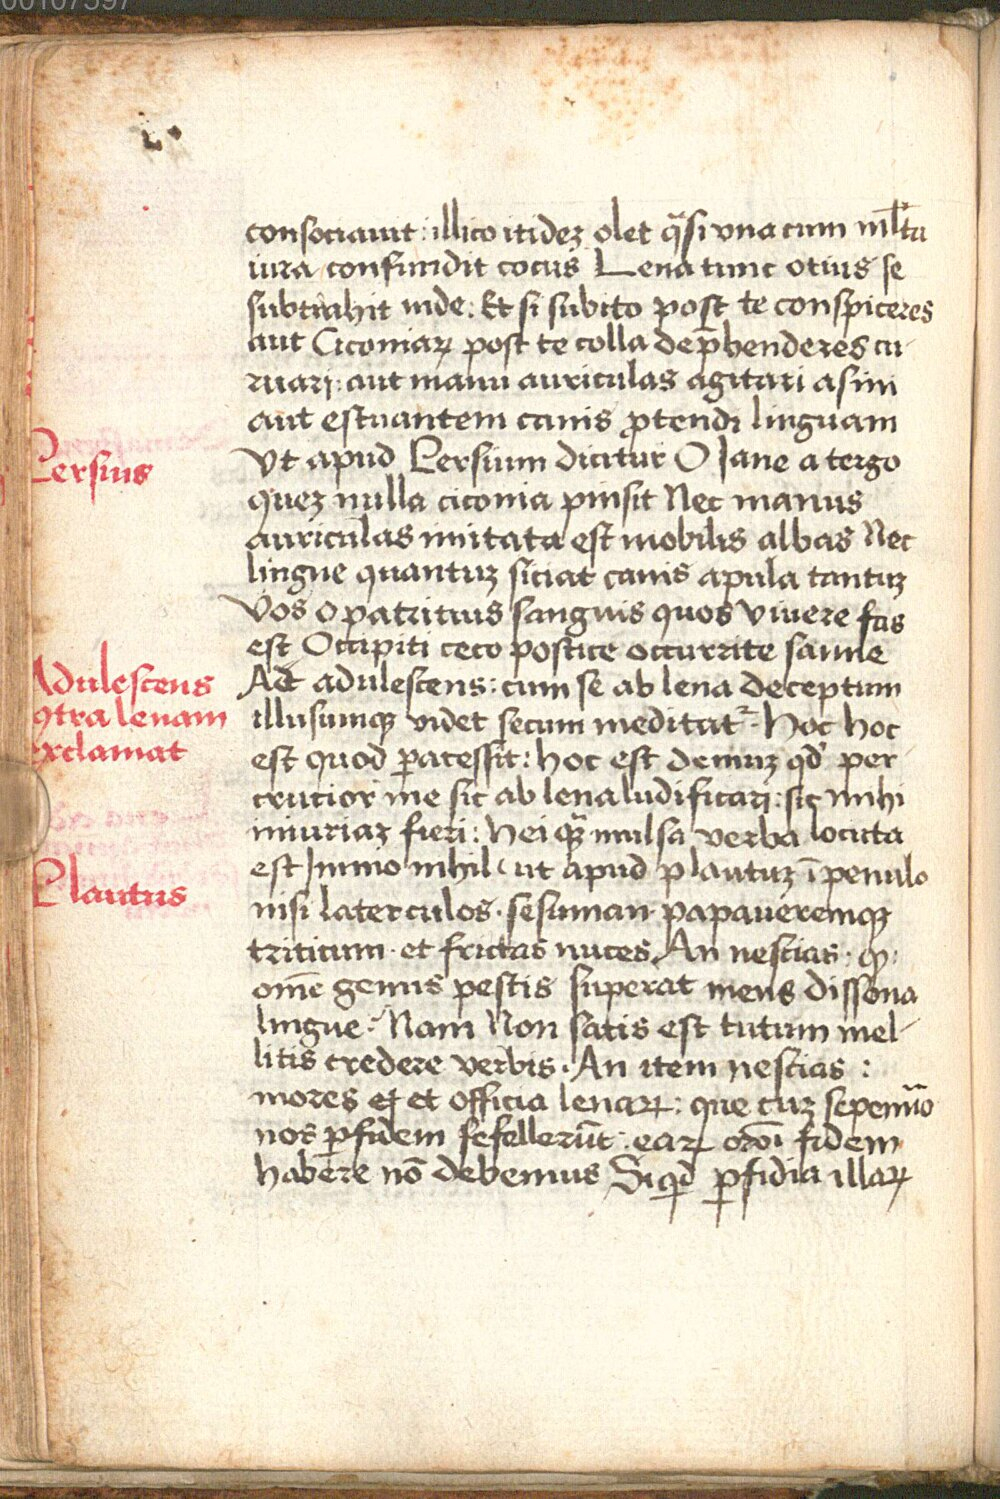 consociauit : illico itidez olet q̈si vna cum ml̄ta
iura confundit cocus Lena tunc otius se
subtrahit inde : Et si subito post te conspiceres
aut Ciconiaꝝ post te colla dep̄henderes cu
ruarj : aut manu auriculas agitari asini
aut estuantem canis ꝓtendi linguam
Persius
Vt apud Persium dicitur O Jane a tergo
quez nulla ciconia pinsit Nec manus
auriculas imitata est mobilis albas Nec
lingue quantuz siciat canis apula tantuz
Vos o patritius sanguis quos viuere fas
est Occipiti ceco postice occurrite sanne
Adulescens
ꝯtra lenam
exclamat
Aɫ adulescens : cum se ab lena deceptum
illusumqꝫ videt secum meditatᷣ . Hoc hoc
est quod ꝑacessit : hoc est demuz qd̛ per
crucior me sic ab lena ludificarj : sic mihi
iniuriaz fieri : Hei qꝫ̈ mulsa verba locuta
Plautus
est Immo nihil ( ut apud plautuz ī penulo
nisi laterculos . sesuman . papaueremqꝫ
trititum . et frictas nuces An nescias . ꝙ :
om̄e genus pestis superat mens dissona
lingue . Nam Non satis est tutum mel
litis credere verbis . An item nescias :
mores eꝫ et officia lenaꝝ : que cuz sepenūo
nos ꝑfidem fefellerūt : eaꝝ or̄oi fidem
habere nō debemus Siqd̛ ꝑfidia illaꝝ